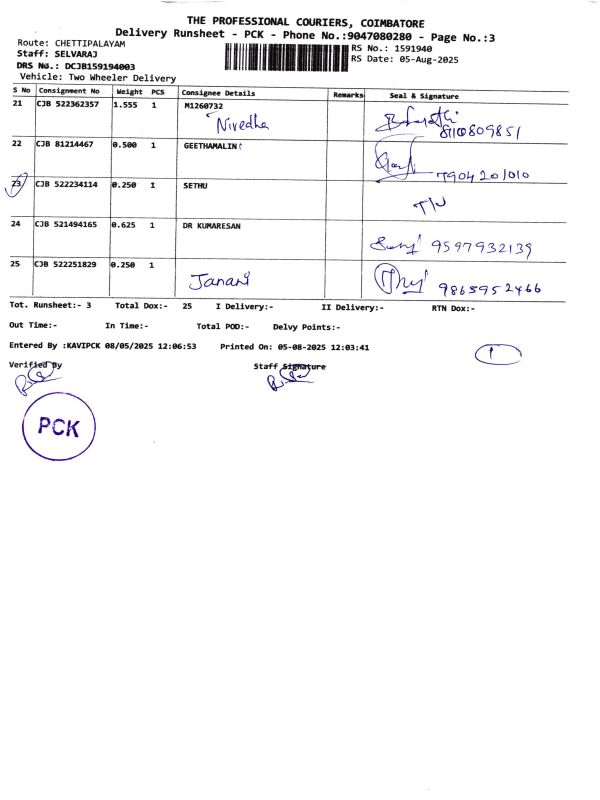 THE PROFESSIONAL COURIERS, COIMBATORE
Delivery Runsheet - PCK - Phone No.:9047080280 - Page No.:3
Route: CHETTIPALAYAM
Staff: SELVARAJ
DRS No.: DCJB159194003
Vehicle: Two Wheeler Delivery
RS No.: 1591940
RS Date: 05-Aug-2025
S No Consignment No Weight PCS Consignee Details Remarks Seal & Signature
21 CJB 522362357 1.555 1 M1260732
Nivedha 8110809851
22 CJB 81214467 0.500 1 GEETHAMALINI
7904201010
23 CJB 522234114 0.250 1 SETHU
24 CJB 521494165 0.625 1 DR KUMARESAN
9597932139
25 CJB 522251829 0.250 1
Janani 9865952466
Tot. Runsheet:- 3 Total Dox:- 25 I Delivery:- II Delivery:- RTN Dox:-
Out Time:- In Time:- Total POD:- Delvy Points:-
Entered By :KAVIPCK 08/05/2025 12:06:53 Printed On: 05-08-2025 12:03:41
1
Verified By Staff Signature
PCK